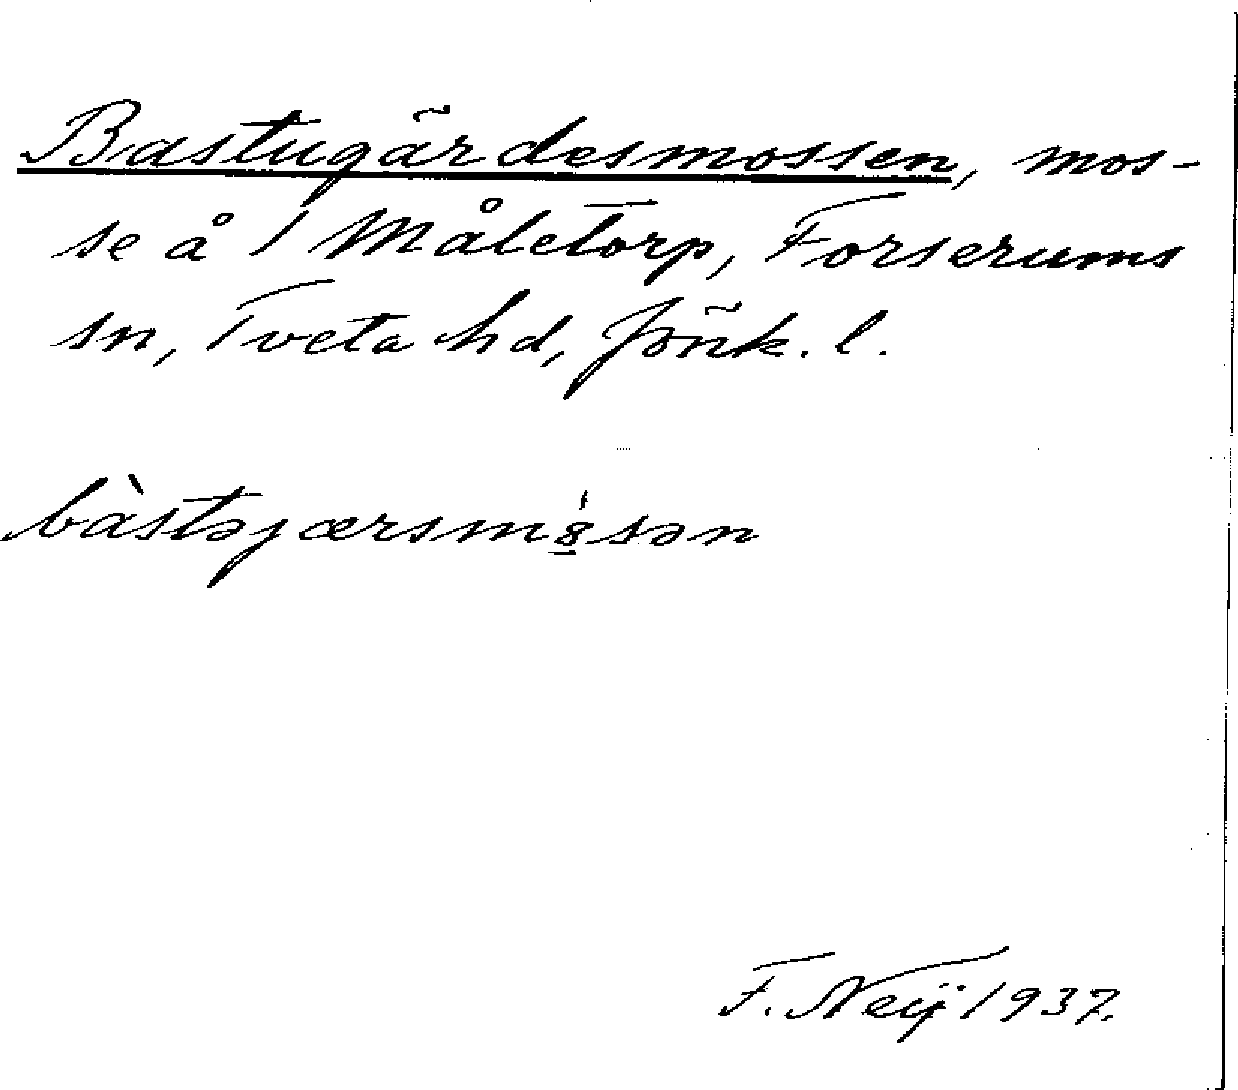 Bastugärdesmossen, mos-
se å 1 Måletorp, Forserums
sn, Tveta hd, Jönk. l.
bàstəjærsm8̲́sən
F. Neij 1937.